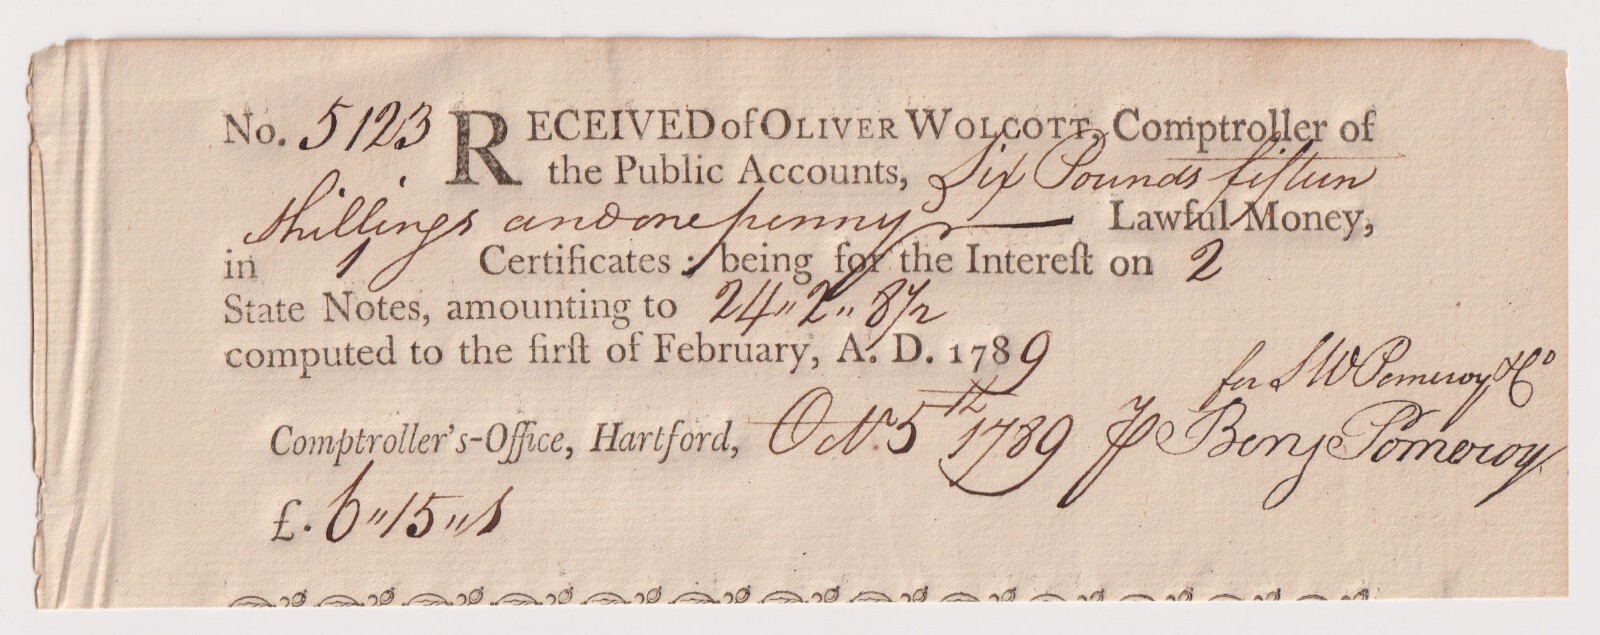 No. 5123 RECEIVED of OLIVER WOLCOTT, Comptroller of
the Public Accounts, Six Pounds fifteen
shillings and one penny Lawful Money,
in 1 Certificates: being for the Intereſt on 2
State Notes, amounting to 24"2"8½
computed to the firſt of February, A. D. 1789
for S W Pomeroy & Co
Comptroller's-Office, Hartford, Octr. 5th 1789 Benj Pomeroy
£. 6"15"1